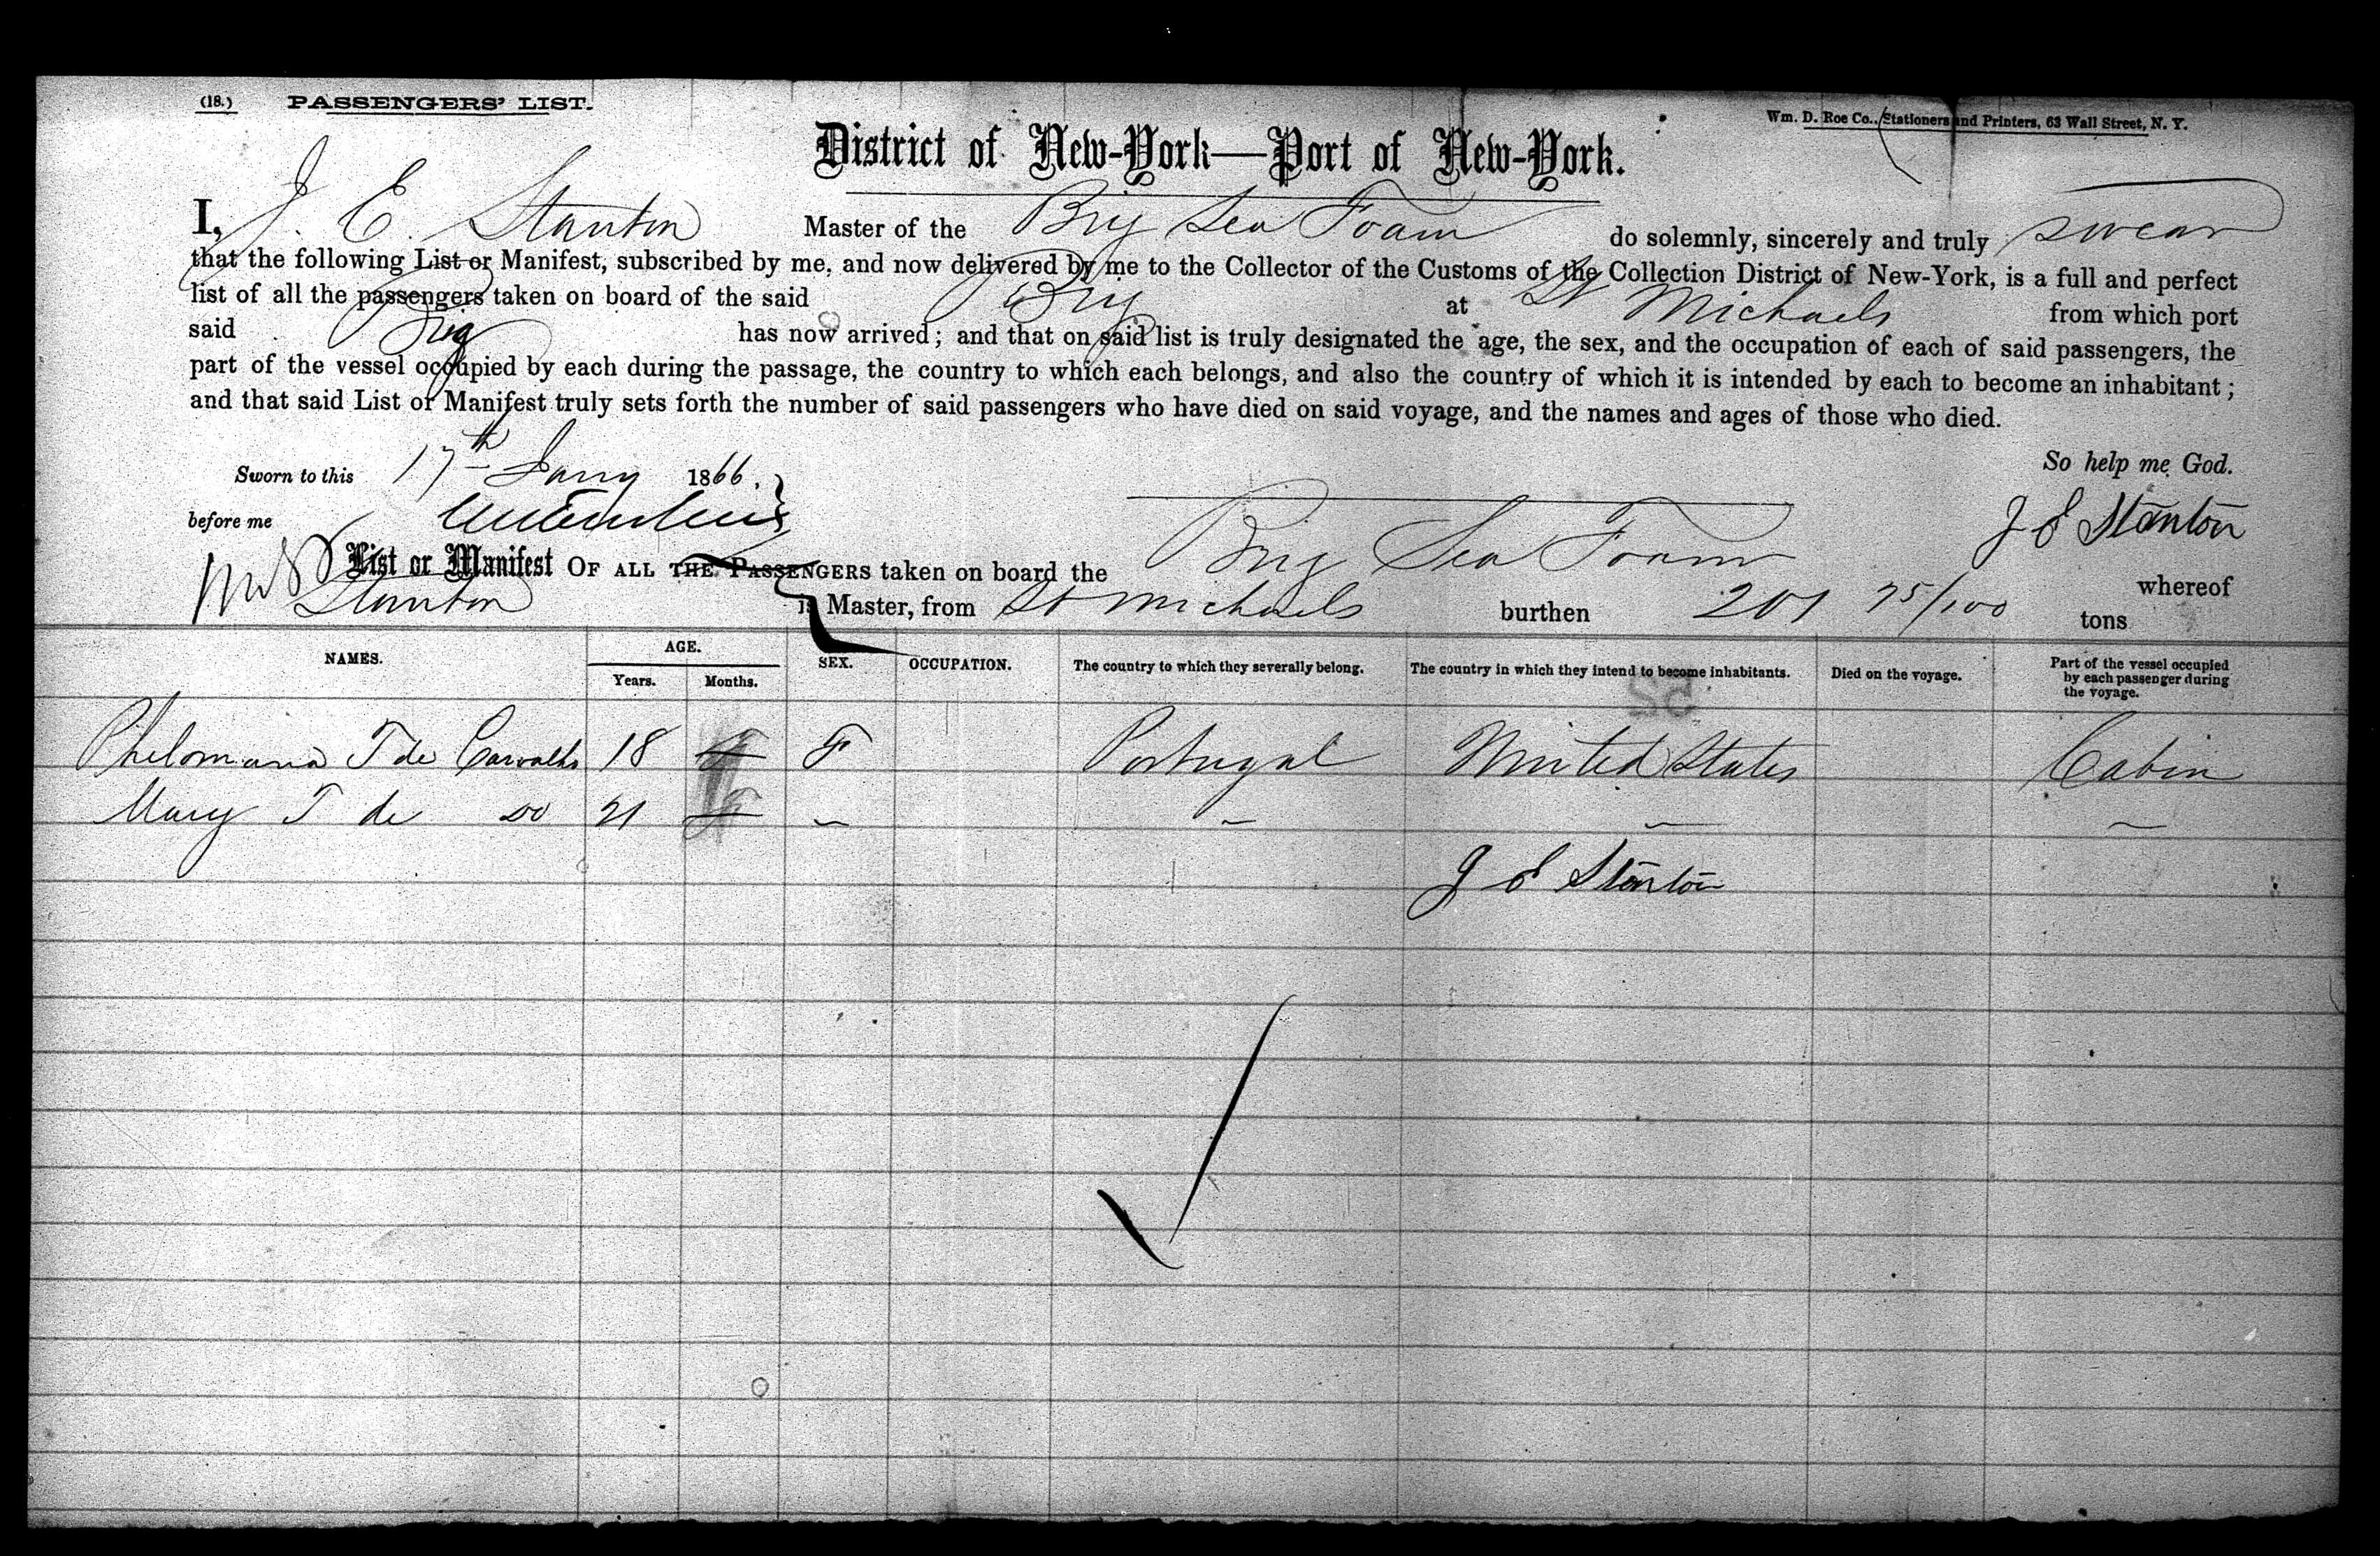 (18.) PASSENGERS' LIST.
Wm. D. Roe Co., Stationers and Printers, 63 Wall Street, N. Y.
District of New-York—Port of New-York.
I, J. E. Stanton Master of the Brig Sea Foam do solemnly, sincerely and truly swear
that the following List or Manifest, subscribed by me, and now delivered by me to the Collector of the Customs of the Collection District of New-York, is a full and perfect
list of all the passengers taken on board of the said Brig at St Michaels from which port
said Brig has now arrived; and that on said list is truly designated the age, the sex, and the occupation of each of said passengers, the
part of the vessel occupied by each during the passage, the country to which each belongs, and also the country of which it is intended by each to become an inhabitant;
and that said List or Manifest truly sets forth the number of said passengers who have died on said voyage, and the names and ages of those who died.
So help me God.
Sworn to this 17th Jany 1866.
before me
J E Stanton
List or Manifest OF ALL THE PASSENGERS taken on board the Brig Sea Foam whereof
Stanton is Master, from St Michaels burthen 201 75/100 tons
NAMES. AGE. Years. Months. SEX. OCCUPATION. The country to which they severally belong. The country in which they intend to become inhabitants. Died on the voyage. Part of the vessel occupied by each passenger during the voyage.
Philomana T de Carvalho 18 F F Portugal United States Cabin
Mary T de Do 21 F
J E Stanton